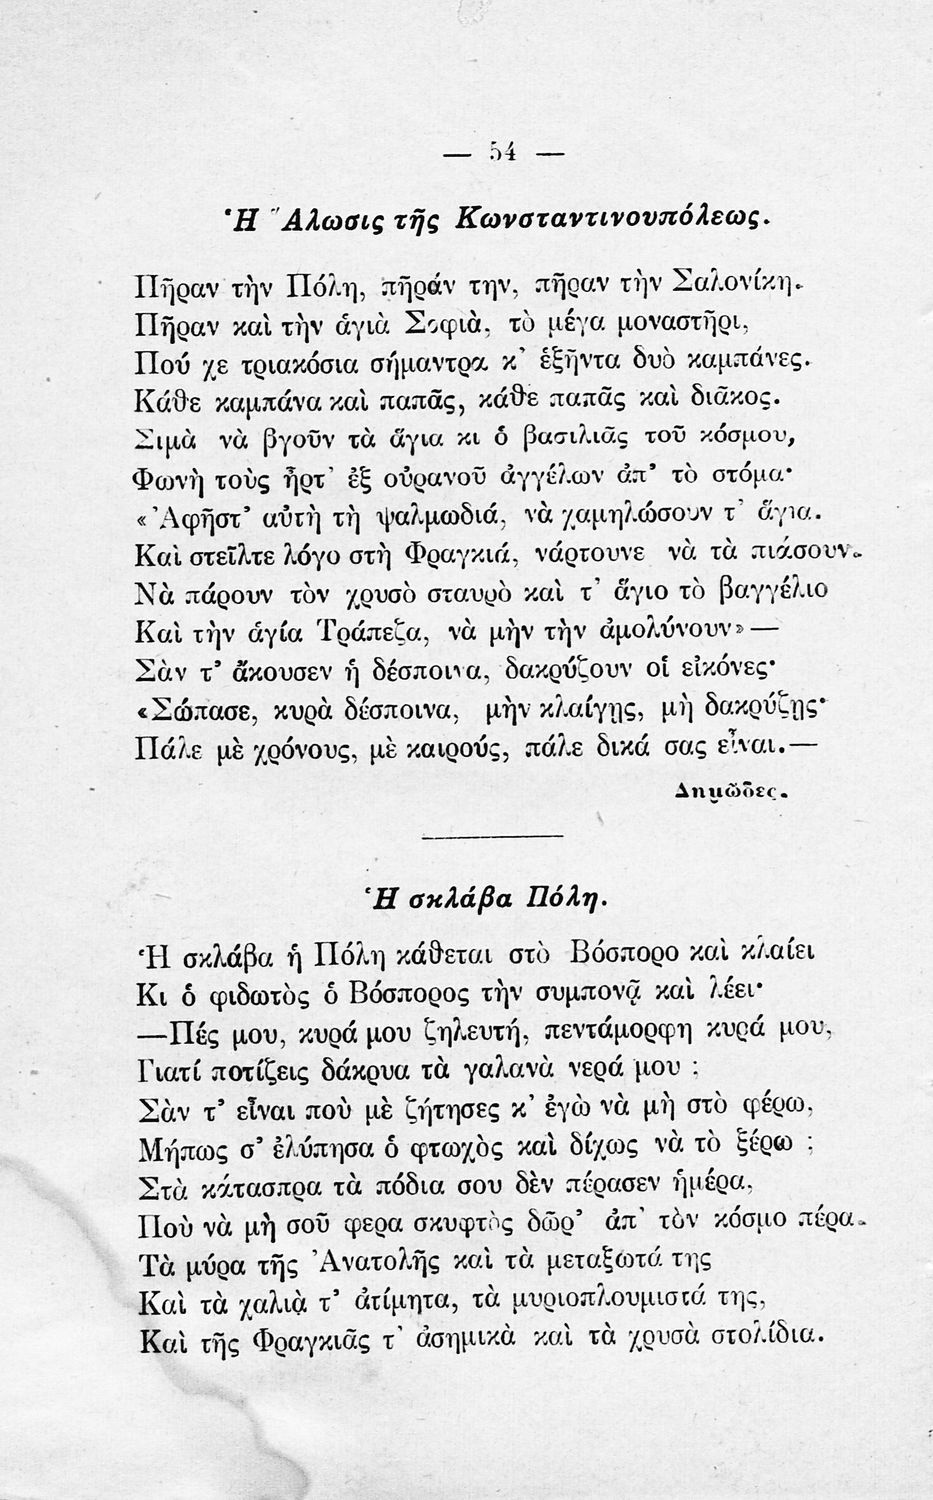 — 54 —
Ἡ Ἅλωσις τῆς Κωνσταντινουπόλεως.
Πῆραν τὴν Πόλη, πῆράν την, πῆραν τὴν Σαλονίκη.
Πῆραν καὶ τὴν ἁγιὰ Σοφιὰ, τὸ μέγα μοναστῆρι,
Πού χε τριακόσια σήμαντρα κ᾿ ἑξῆντα δυὸ καμπάνες.
Κάθε καμπάνα καὶ παπᾶς, κάθε παπᾶς καὶ διᾶκος.
Σιμὰ νὰ βγοῦν τὰ ἅγια κι ὁ βασιλιᾶς τοῦ κόσμου,
Φωνὴ τοὺς ἦρτ᾿ ἐξ οὐρανοῦ ἀγγέλων ἀπ᾿ τὸ στόμα·
«Ἀφῆστ᾿ αὐτὴ τὴ ψαλμωδιά, νὰ χαμηλώσουν τ᾿ ἅγια.
Καὶ στεῖλτε λόγο στὴ Φραγκιά, νάρτουνε νὰ τὰ πιάσουν.
Νὰ πάρουν τὸν χρυσὸ σταυρὸ καὶ τ᾿ ἅγιο τὸ βαγγέλιο
Καὶ τὴν ἁγία Τράπεζα, νὰ μὴν τὴν ἀμολύνουν» —
Σὰν τ᾿ ἄκουσεν ἡ δέσποινα, δακρύζουν οἱ εἰκόνες·
«Σώπασε, κυρὰ δέσποινα, μὴν κλαίγῃς, μὴ δακρύζῃς·
Πάλε μὲ χρόνους, μὲ καιρούς, πάλε δικά σας εἶναι.—
Δημῶδες.
Ἡ σκλάβα Πόλη.
Ἡ σκλάβα ἡ Πόλη κάθεται στὸ Βόσπορο καὶ κλαίει
Κι ὁ φιδωτὸς ὁ Βόσπορος τὴν συμπονᾷ καὶ λέει·
—Πές μου, κυρά μου ζηλευτή, πεντάμορφη κυρά μου,
Γιατί ποτίζεις δάκρυα τὰ γαλανὰ νερά μου ;
Σὰν τ᾿ εἶναι ποὺ μὲ ζήτησες κ᾿ ἐγὼ νὰ μὴ στὸ φέρω,
Μήπως σ᾿ ἐλύπησα ὁ φτωχὸς καὶ δίχως νὰ τὸ ξέρω ;
Στὰ κάτασπρα τὰ πόδια σου δὲν πέρασεν ἡμέρα,
Ποὺ νὰ μὴ σοῦ φερα σκυφτὸς δῶρ᾿ ἀπ᾿ τὸν κόσμο πέρα.
Τὰ μύρα τῆς Ἀνατολῆς καὶ τὰ μεταξωτά της
Καὶ τὰ χαλιὰ τ᾿ ἀτίμητα, τὰ μυριοπλουμιστά της,
Καὶ τῆς Φραγκιᾶς τ᾿ ἀσημικὰ καὶ τὰ χρυσὰ στολίδια.